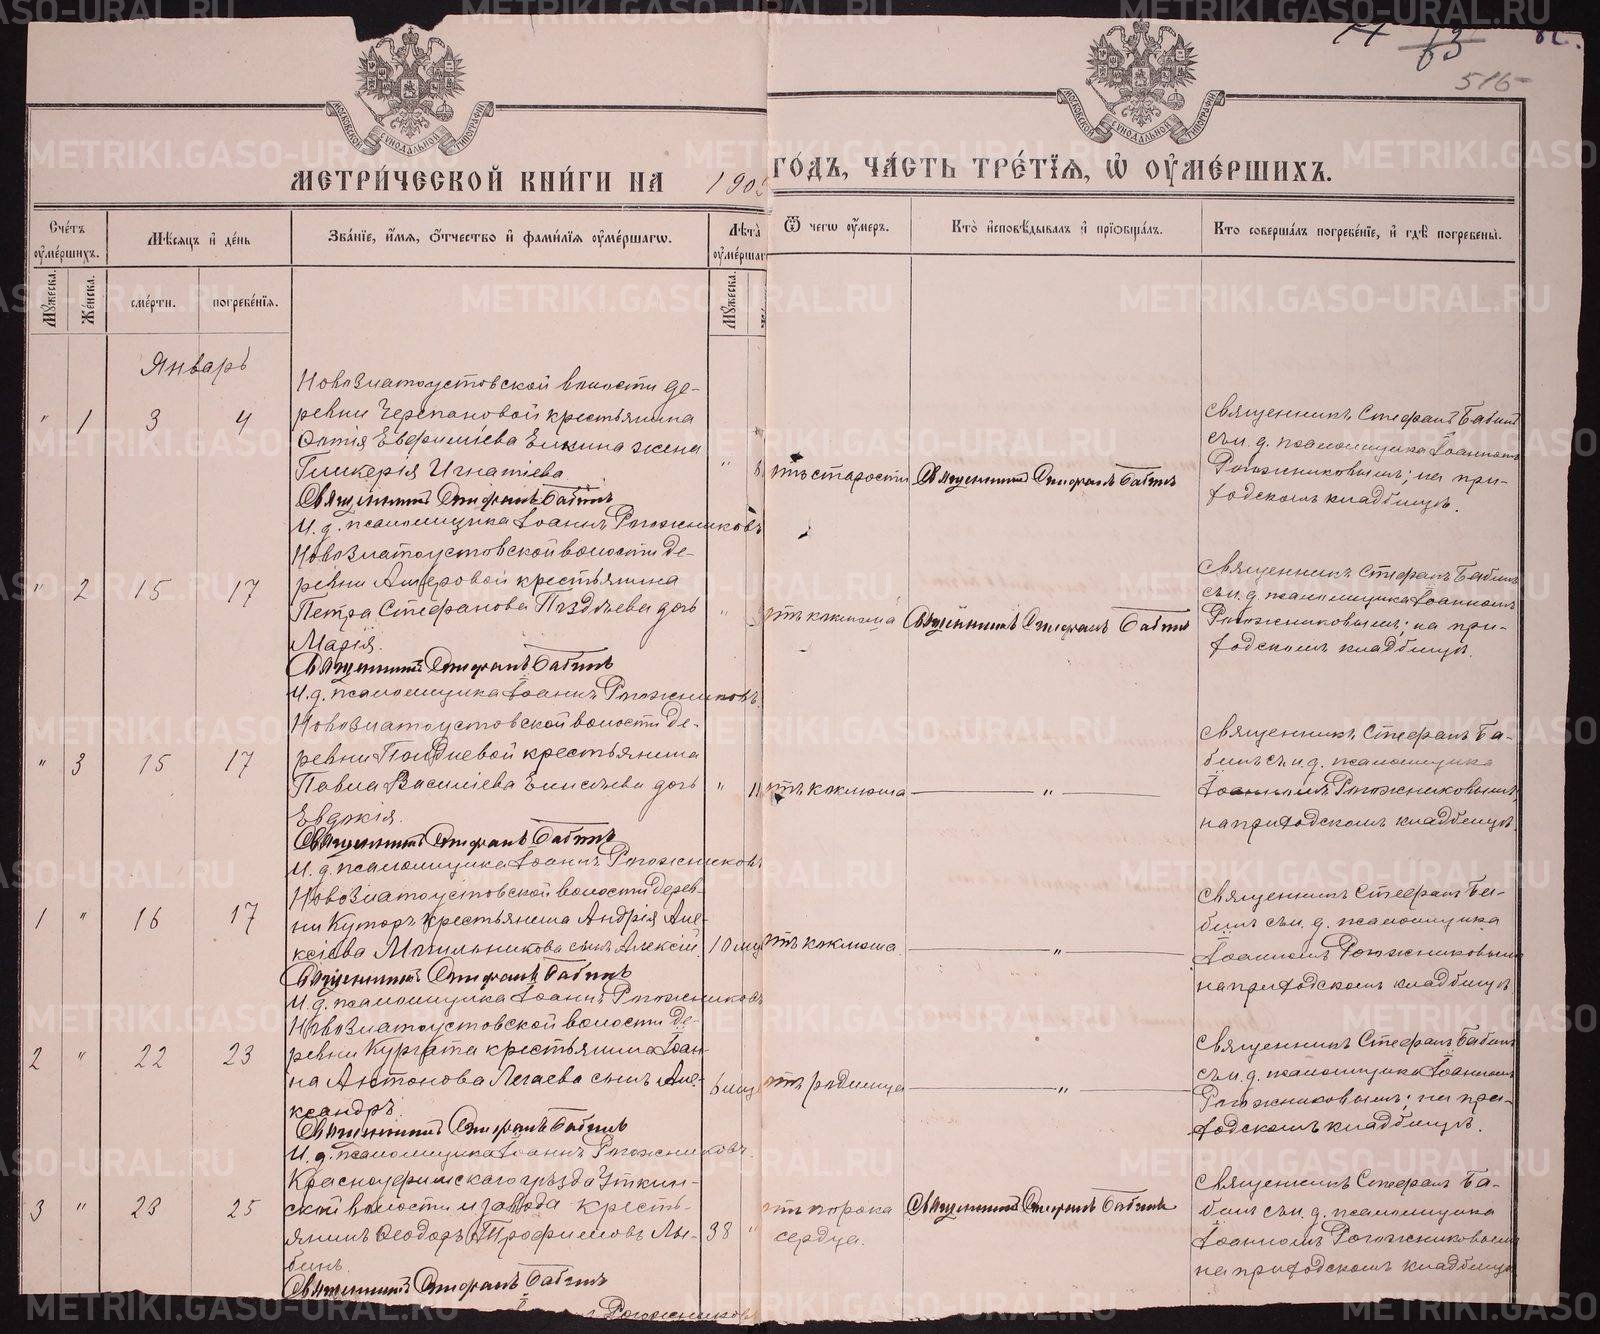 63
515
МОСКОВСКОЙ СѴНОДАЛЬНОЙ ТИПОГРАФІИ
МОСКОВСКОЙ СѴНОДАЛЬНОЙ ТИПОГРАФІИ
МЕТРИ́ЧЕСКОЙ КНИ́ГИ НА 190 ГО́ДЪ, ЧА́СТЬ ТРЕ́ТІѦ, Ѡ ОУ҆МЕ́РШИХЪ.
Сче́тъ оу҆ме́ршихъ.
Мꙋ́жеска.
Же́нска.
Мѣ́сяцъ и҆ де́нь
сме́рти.
погребе́нїѧ.
Зва́нїе, и҆́мѧ, ѻ҆́тчество и҆ фами́лїѧ оу҆ме́ршагѡ.
Лѣ́та оу҆ме́ршаг
Мꙋ́жеска.
Ѿ чегѡ оу҆́меръ.
Кто̀ и҆сповѣ́дывалъ и҆ прїѡбща́лъ.
Кто соверша́лъ погребе́нїе, и҆ гдѣ̀ погребены̀.
Январь
" 1 3 4
Новозлатоустовской волости де-
ревни Черепановой крестьянина
Евфиміева Елкина жена
Гликерія Игнатіева
Священникъ Стефанъ Бабинъ
И. д. псаломщика Іоаннъ Рогожниковъ
" 8
отъ старости
Священникъ Стефанъ Бабинъ
Священникъ Стефанъ Бабинъ
съ и. д. псаломщика Іоанномъ
Рогожниковымъ; на при-
ходскомъ кладбищѣ.
" 2 15 17
Новозлатоустовской волости де-
ревни крестьянина
Петра Стефанова дочь
Марія.
Священникъ Стефанъ Бабинъ
И. д. псаломщика Іоаннъ Рогожниковъ.
"
отъ коклюша
Священникъ Стефанъ Бабинъ
Священникъ Стефанъ Бабинъ
съ и. д. псаломщика Іоанномъ
Рогожниковымъ; на при-
ходскомъ кладбищѣ.
" 3 15 17
Новозлатоустовской волости де-
ревни крестьянина
Павла Василіева Елисѣева дочь
Евдокія.
Священникъ Стефанъ Бабинъ
И. д. псаломщика Іоаннъ Рогожниковъ
" 11
отъ коклюша
"
Священникъ Стефанъ Ба-
бинъ съ и. д. псаломщика
Іоанномъ Рогожниковымъ;
на приходскомъ кладбищѣ.
1 " 16 17
Новозлатоустовской волости дерев-
ни крестьянина Андрія Але-
ксіева Могильникова сынъ Алексій.
Священникъ Стефанъ Бабинъ
И. д. псаломщика Іоаннъ Рогожниковъ
10
отъ коклюша.
"
Священникъ Стефанъ Ба-
бинъ съ и. д. псаломщика
Іоанномъ Рогожниковымъ
на приходскомъ кладбищѣ
2 " 22 23
Новозлатоустовской волости де-
ревни крестьянина Іоан-
на Антонова Легаева сынъ Але-
ксандръ.
Священникъ Стефанъ Бабинъ
И. д. псаломщика Іоаннъ Рогожниковъ.
6
отъ родимца
"
Священникъ Стефанъ Бабинъ
съ и. д. псаломщика Іоанномъ
Рогожниковымъ; на при-
ходскомъ кладбищѣ.
3 " 23 25
Красноуфимскаго уѣзда Уткин-
ской волости и завода кресть-
янинъ Ѳеодоръ Трофимовъ Лы-
бинъ.
Священникъ Стефанъ Бабинъ
Рогожниковъ
38 "
отъ порока
сердца.
Священникъ Стефанъ Бабинъ
Священникъ Стефанъ Ба-
бинъ съ и. д. псаломщика
Іоанномъ Рогожниковымъ
на приходскомъ кладбищѣ
METRIKI.GASO-URAL.RU